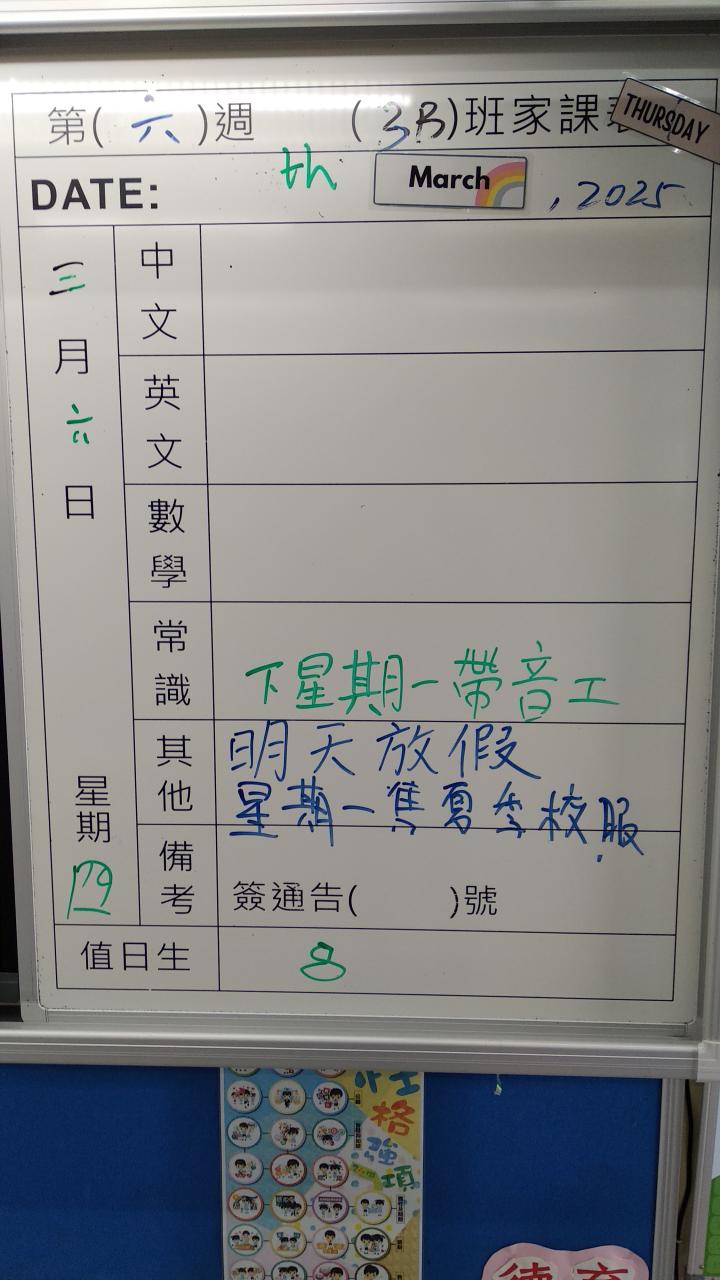 第(六)週 (3B)班家課表
THURSDAY
DATE: th March , 2025
三月六日
星期四
中文
英文
數學
常識 下星期一帶音工
其他 明天放假
星期一隽夏季校服
備考 簽通告( )號
值日生 8
性格強項